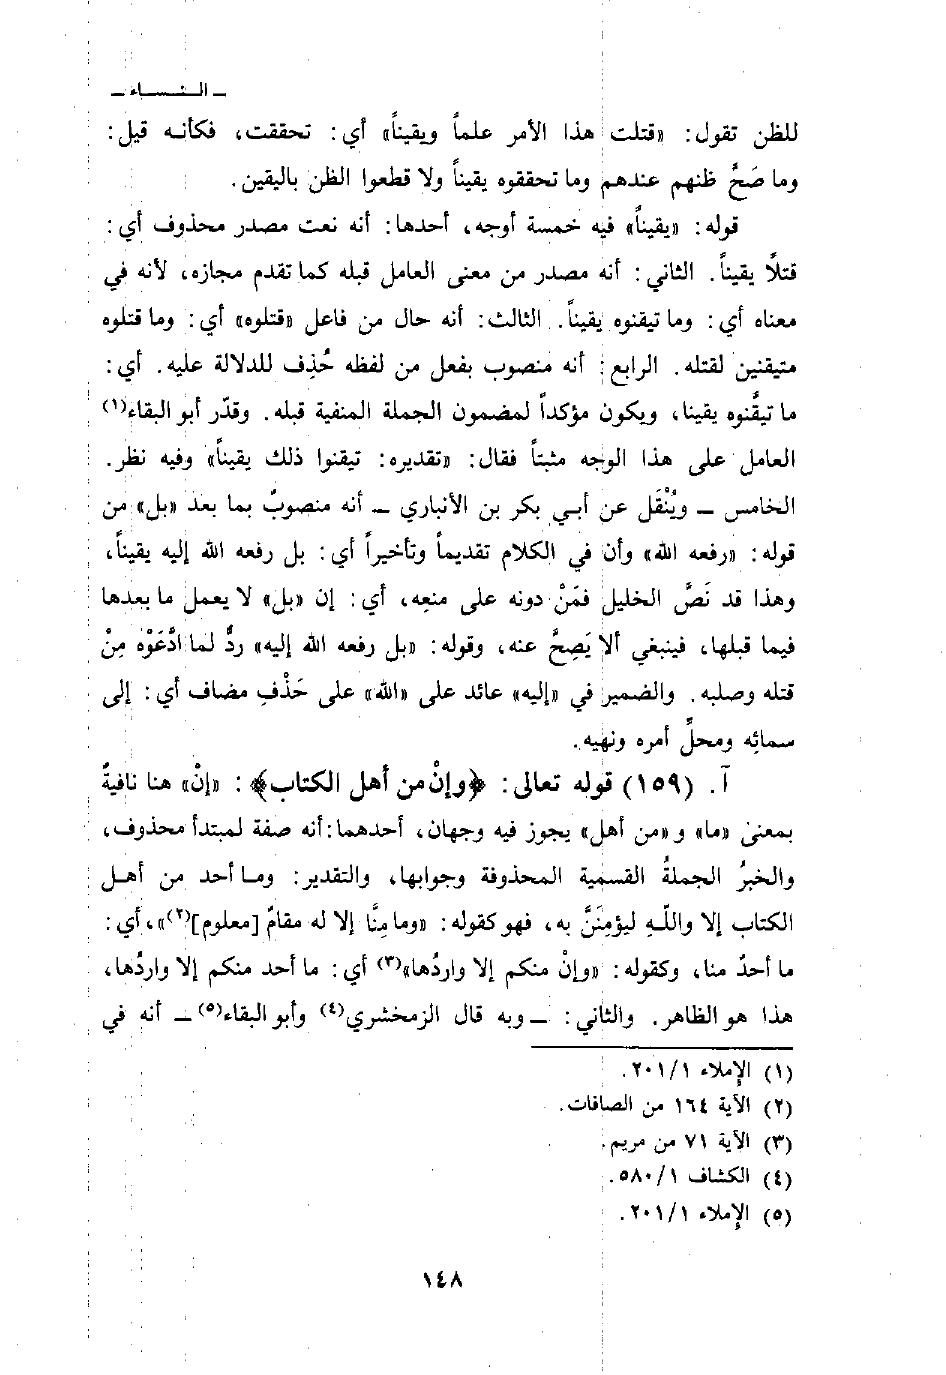 ـ النســـاء ـ
للظن تقول: «قتلت هذا الأمر علماً ويقيناً» أي: تحققت، فكأنه قيل:
وما صَحَّ ظنهم عندهم وما تحققوه يقيناً ولا قطعوا الظن باليقين.
قوله: «يقيناً» فيه خمسة أوجه، أحدها: أنه نعت مصدر محذوف أي:
قتلاً يقيناً. الثاني: أنه مصدر من معنى العامل قبله كما تقدم مجازه، لأنه في
معناه أي: وما تيقنوه يقيناً. الثالث: أنه حال من فاعل «قتلوه» أي: وما قتلوه
متيقنين لقتله. الرابع: أنه منصوب بفعل من لفظه حُذِف للدلالة عليه. أي:
ما تيقَّنوه يقينا، ويكون مؤكداً لمضمون الجملة المنفية قبله. وقدّر أبو البقاء(١)
العامل على هذا الوجه مثبتاً فقال: «تقديره: تيقنوا ذلك يقيناً» وفيه نظر.
الخامس ـ ويُنْقَل عن أبي بكر بن الأنباري ـ أنه منصوبٌ بما بعد «بل» من
قوله: «رفعه الله» وأن في الكلام تقديماً وتأخيراً أي: بل رفعه الله إليه يقيناً،
وهذا قد نَصَّ الخليل فمَنْ دونه على منعِه، أي: إن «بل» لا يعمل ما بعدها
فيما قبلها، فينبغي ألا يَصِحَّ عنه، وقوله: «بل رفعه الله إليه» ردٌّ لما ادَّعَوْه مِنْ
قتله وصلبه. والضمير في «إليه» عائد على «الله» على حَذْفِ مضاف أي: إلى
سمائِه ومحلِّ أمره ونهيه.
آ. (١٥٩) قوله تعالى: ﴿وإنْ من أهل الكتاب﴾: «إنْ» هنا نافيةٌ
بمعنى «ما» و «من أهل» يجوز فيه وجهان، أحدهما: أنه صفة لمبتدأ محذوف،
والخبرُ الجملةُ القسمية المحذوفة وجوابها، والتقدير: وما أحد من أهل
الكتاب إلا واللَّهِ ليؤمِنَنَّ به، فهو كقوله: «وما مِنَّا إلا له مقامٌ [معلوم](٢)»، أي:
ما أحدٌ منا، وكقوله: «وإنْ منكم إلا واردُها»(٣) أي: ما أحد منكم إلا واردُها،
هذا هو الظاهر. والثاني: ـ وبه قال الزمخشري(٤) وأبو البقاء(٥) ـ أنه في
(١) الإملاء ٢٠١/١.
(٢) الآية ١٦٤ من الصافات.
(٣) الآية ٧١ من مريم.
(٤) الكشاف ٥٨٠/١.
(٥) الإملاء ٢٠١/١.
١٤٨